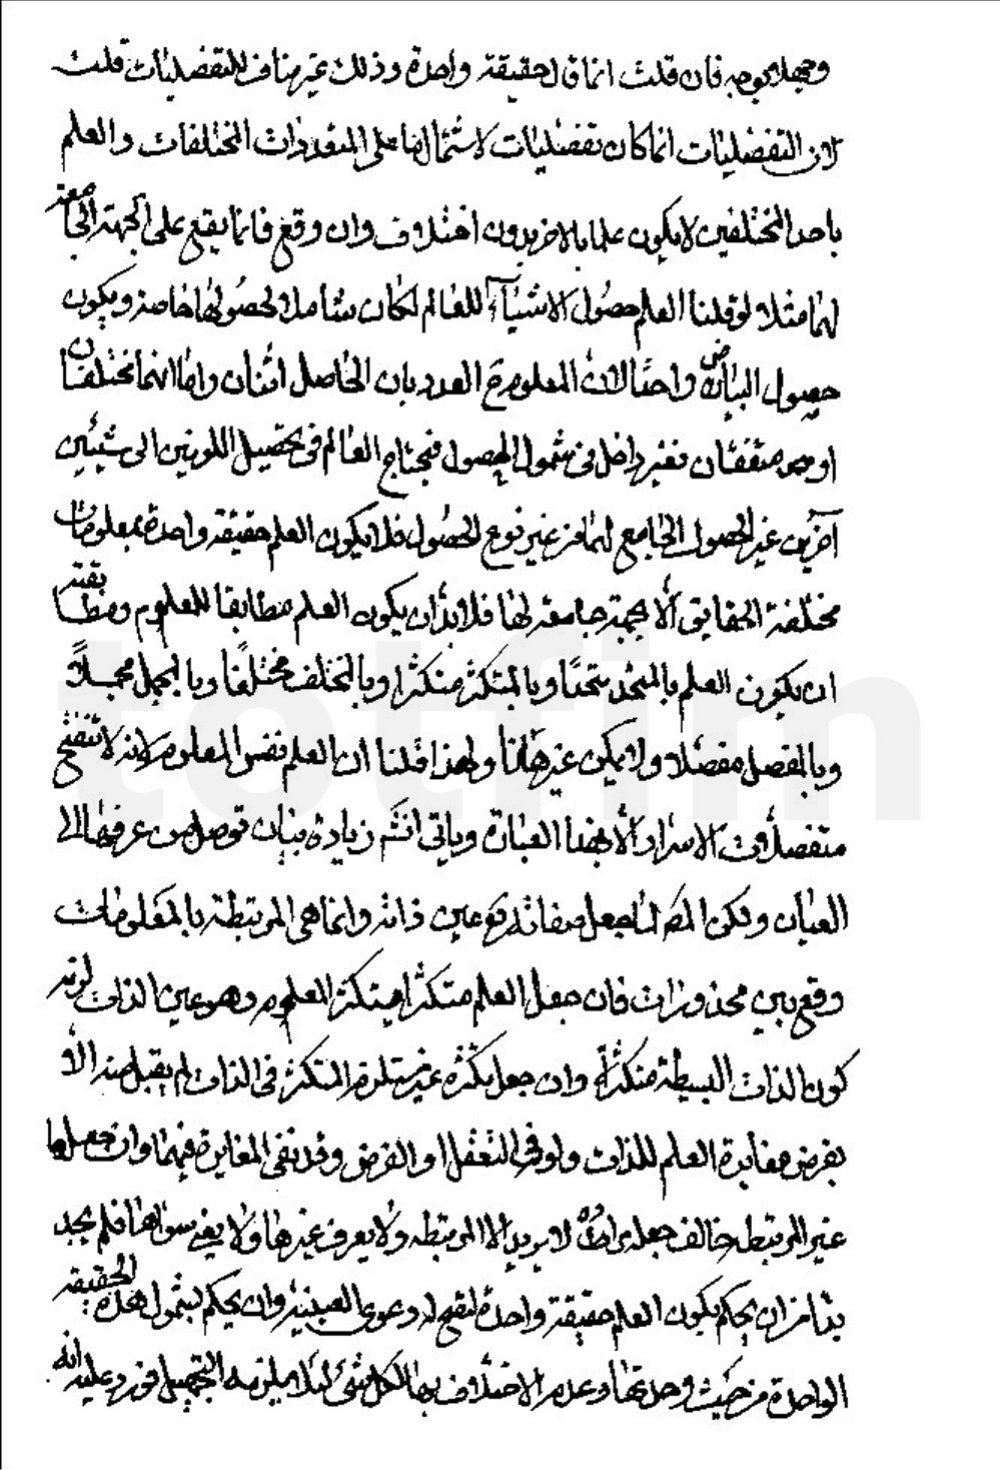 وجهل بوجه فان قلت انما قال حقيقة واحدة وذلك غير مناف للتفضليات قلت
لان التفضليات انما كان تفضليات لاشتمالها على المتعددات المختلفات والعلم
باحد المختلفين لا يكون علما بالاخر بدون اختلاف وان وقع فانما يقع على الجهة الجامعة
لهما مثلا لو قلنا العلم حصول الاشياء للعالم لكان شاملا لحصولها خاصة ويكون
حصول البياض واحدا لان المعلوم العدد بان الحاصل اثنان واما انهما مختلفان
او متفقان فغير داخل في شمول الحصول فيحتاج العالم في تحصيل اللونين الى شيئين
آخرين غير الحصول الجامع لهما من غير نوع الحصول فلا يكون العلم حقيقة واحدة بمعلومات
مختلفة الحقايق الا بجهة جامعة لها فلا بد ان يكون العلم مطابقا للمعلوم ومطابقته
ان يكون العلم بالمتحد متحدا وبالمتكثر متكثرا وبالمختلف مختلفا وبالمجمل مجملا
وبالمفصل مفصلا ولا يمكن غير هذا ولهذا قلنا ان العلم نفس المعلوم لانه لا تنفتح
متفصلات الاسرار الا بهذا العبارة وياتي انشم زيادة بيان توصل من عرفها الى
العيان ولكن المصـ لما جعل صفاته عين ذاته وانما هي المرتبطة بالمعلومات
وقع بين محذورات فان جعل العلم متكثرا بتكثر المعلوم وهو عين الذات لزمه
كون الذات البسيطة متكثرة وان جعل تكثره غير مستلزم التكثر في الذات لم يقبل منه الا
بفرض مغايرة العلم للذات ولو في التعقل او الفرض وقد نفى المغايرة فيهما وان جعلها
غير المرتبطة خالف جعله لانه لا يريد الا المرتبطة ولا يعرف غيرها ولا يعني سواها فلم يجد
بدا من ان يحكم بكون العلم حقيقة واحدة لتصح له دعوى العينية وان يحكم بشمول هذه الحقيقة
الواحدة من حيث وحدتها وعدم الاختلاف بها لكل شئ لئلا يلزمه التجهيل فورد عليه انه